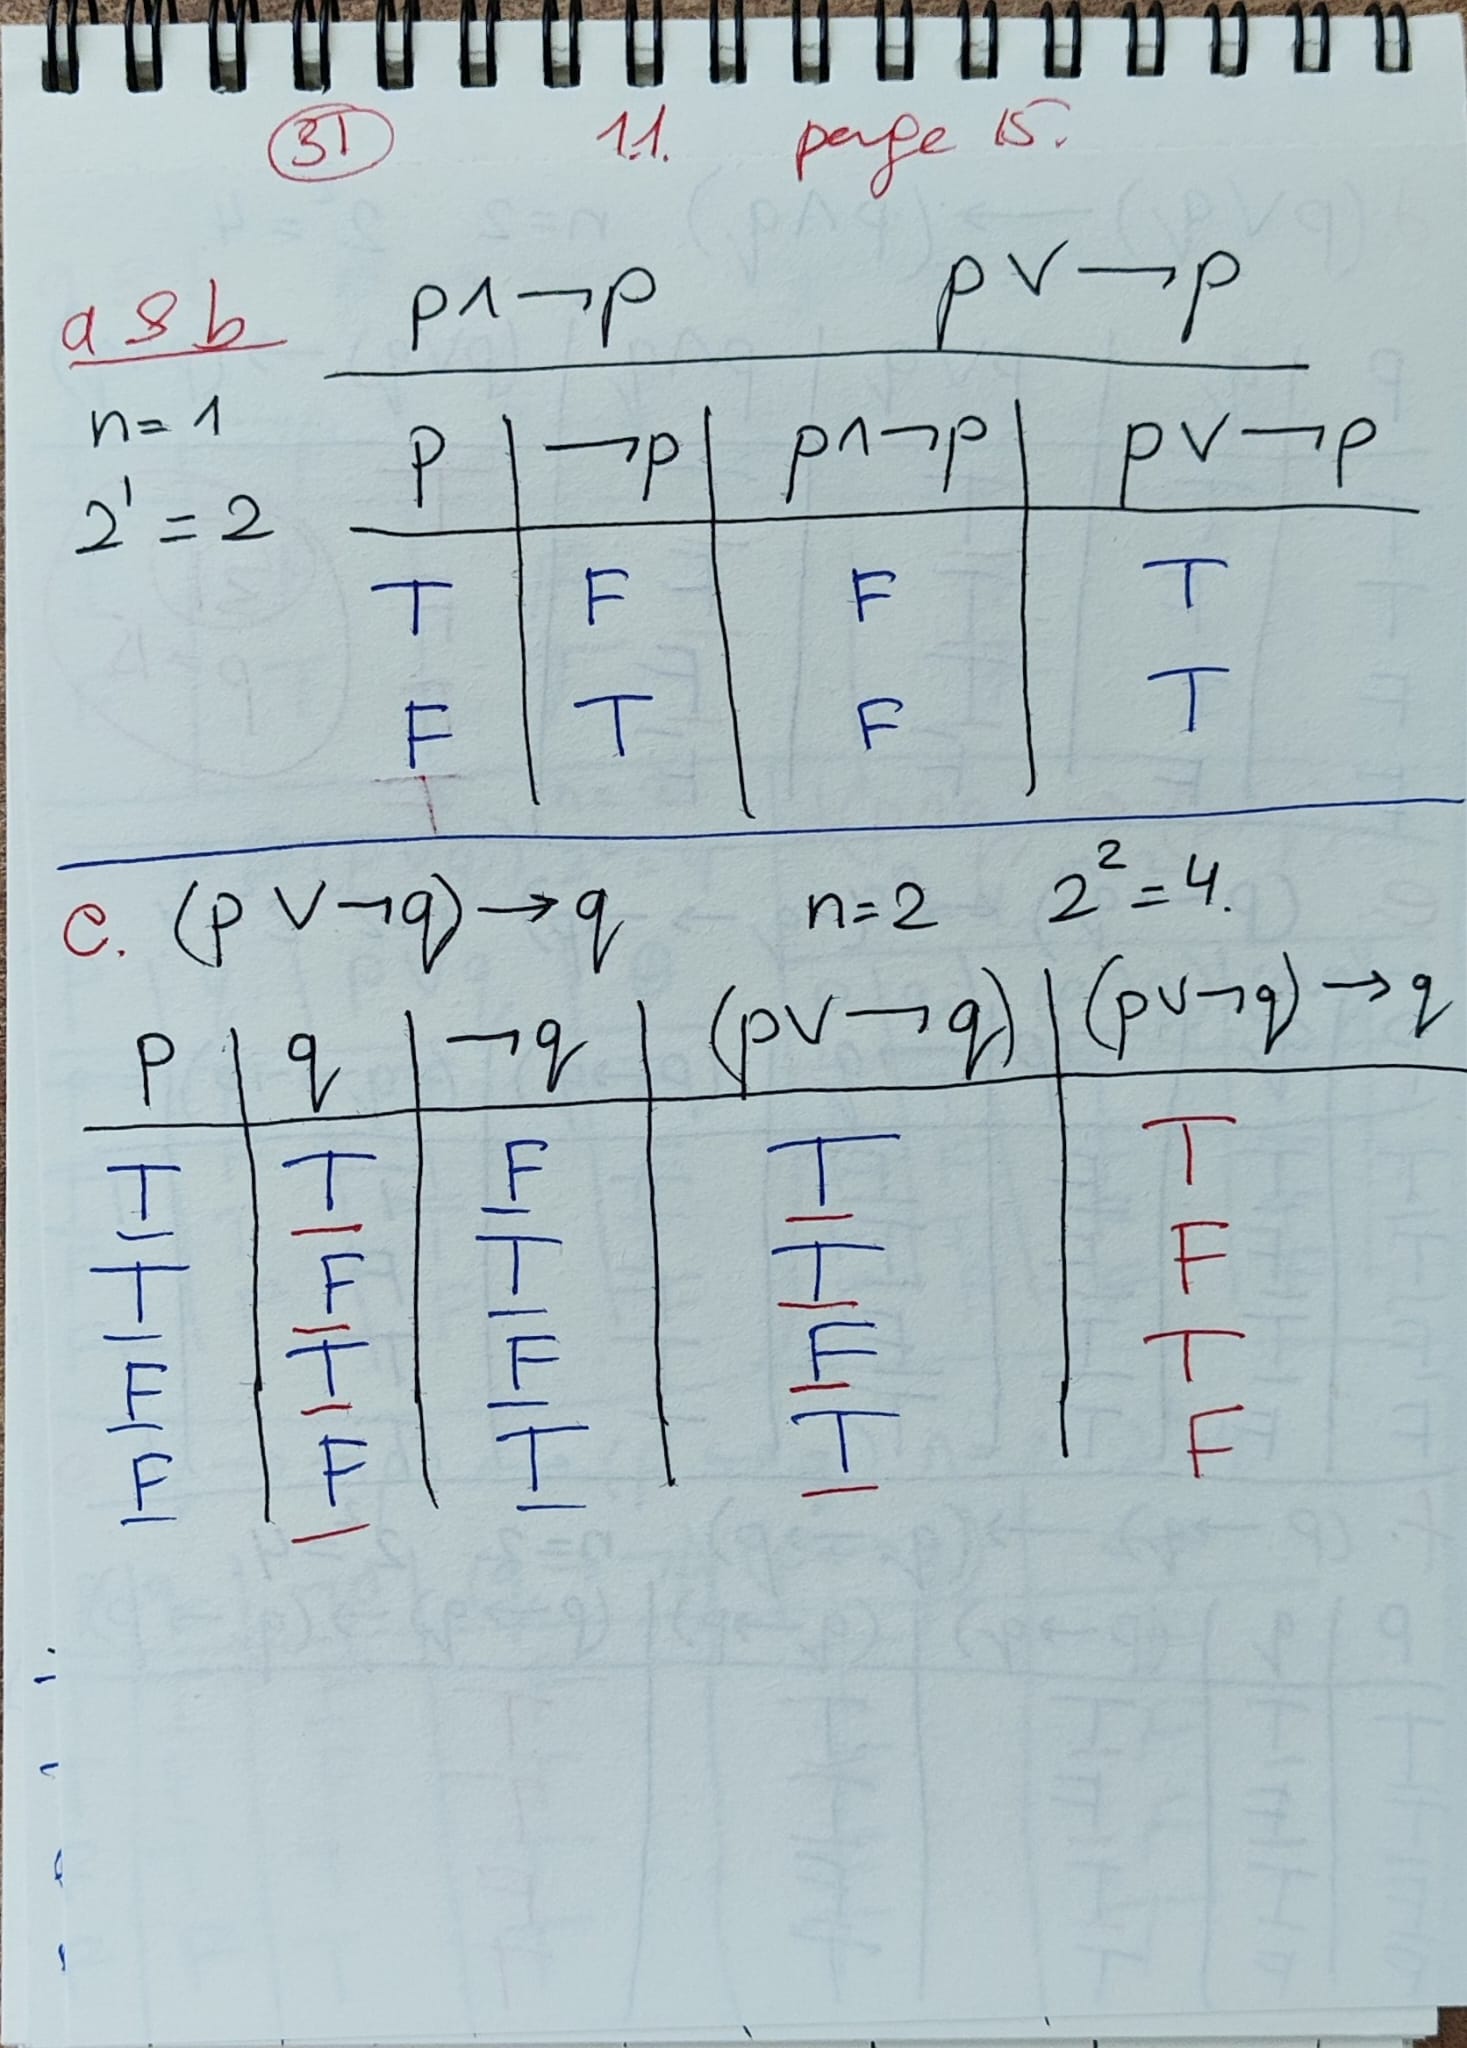 31 1.1. page 15.
a & b p∧¬p p∨¬p
n=1
2¹=2
p | ¬p | p∧¬p | p∨¬p
T | F | F | T
F | T | F | T
c. (p∨¬q)→q n=2 2²=4.
p | q | ¬q | (p∨¬q) | (p∨¬q)→q
T | T | F | T | T
T | F | T | T | F
F | T | F | F | T
F | F | T | T | F